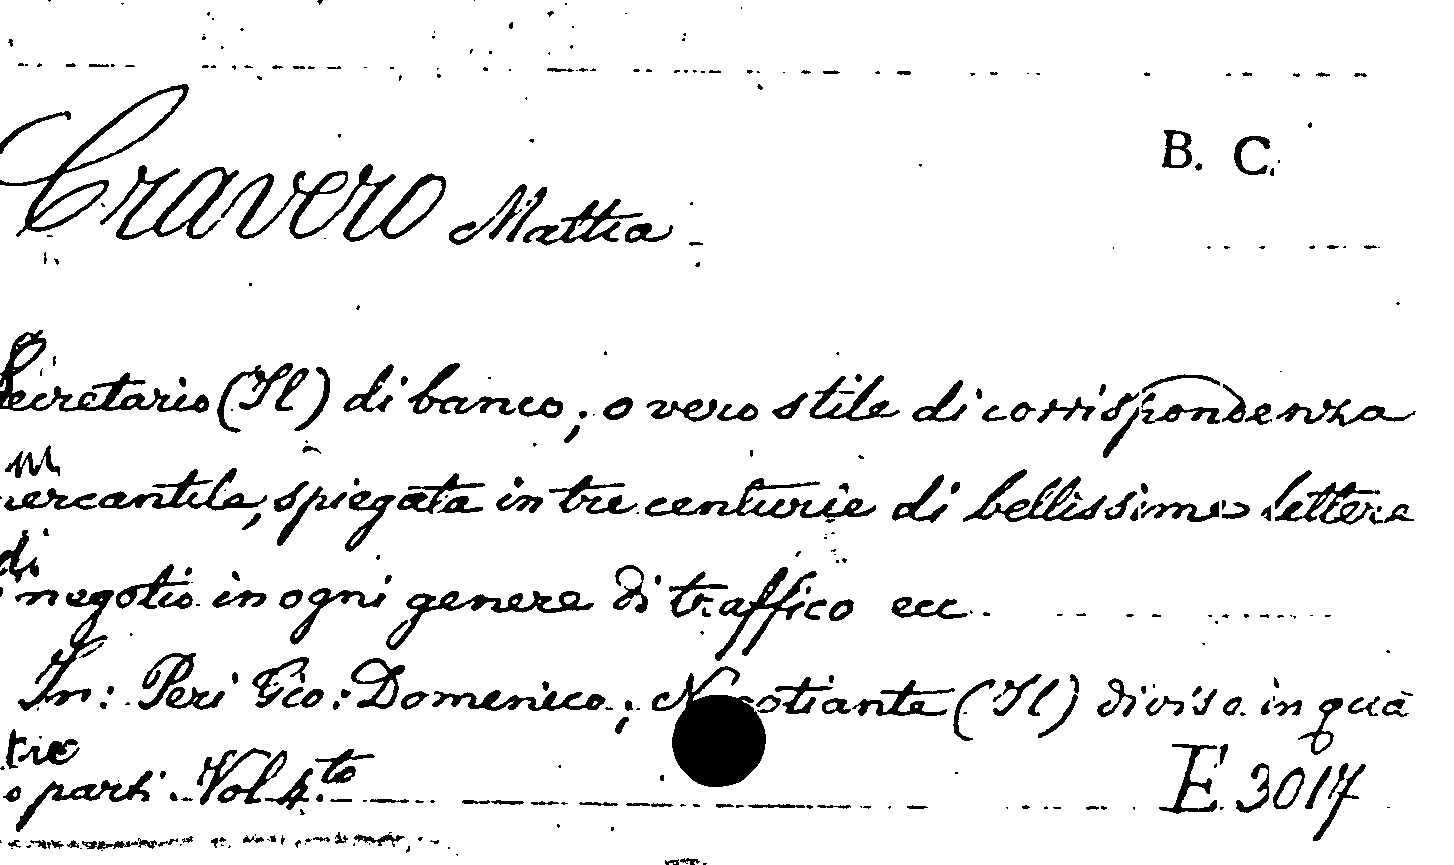 B. C.
Cravero Mattia
Secretario (Il) di banco; o vero stile di corrispondenza
mercantile, spiegata in tre centurie di bellissime lettere
di negotio in ogni genere di traffico ecc.
In: Peri Gio: Domenico; Negotiante (Il) diviso in qua
tro parti. Vol 4.to
E 3017